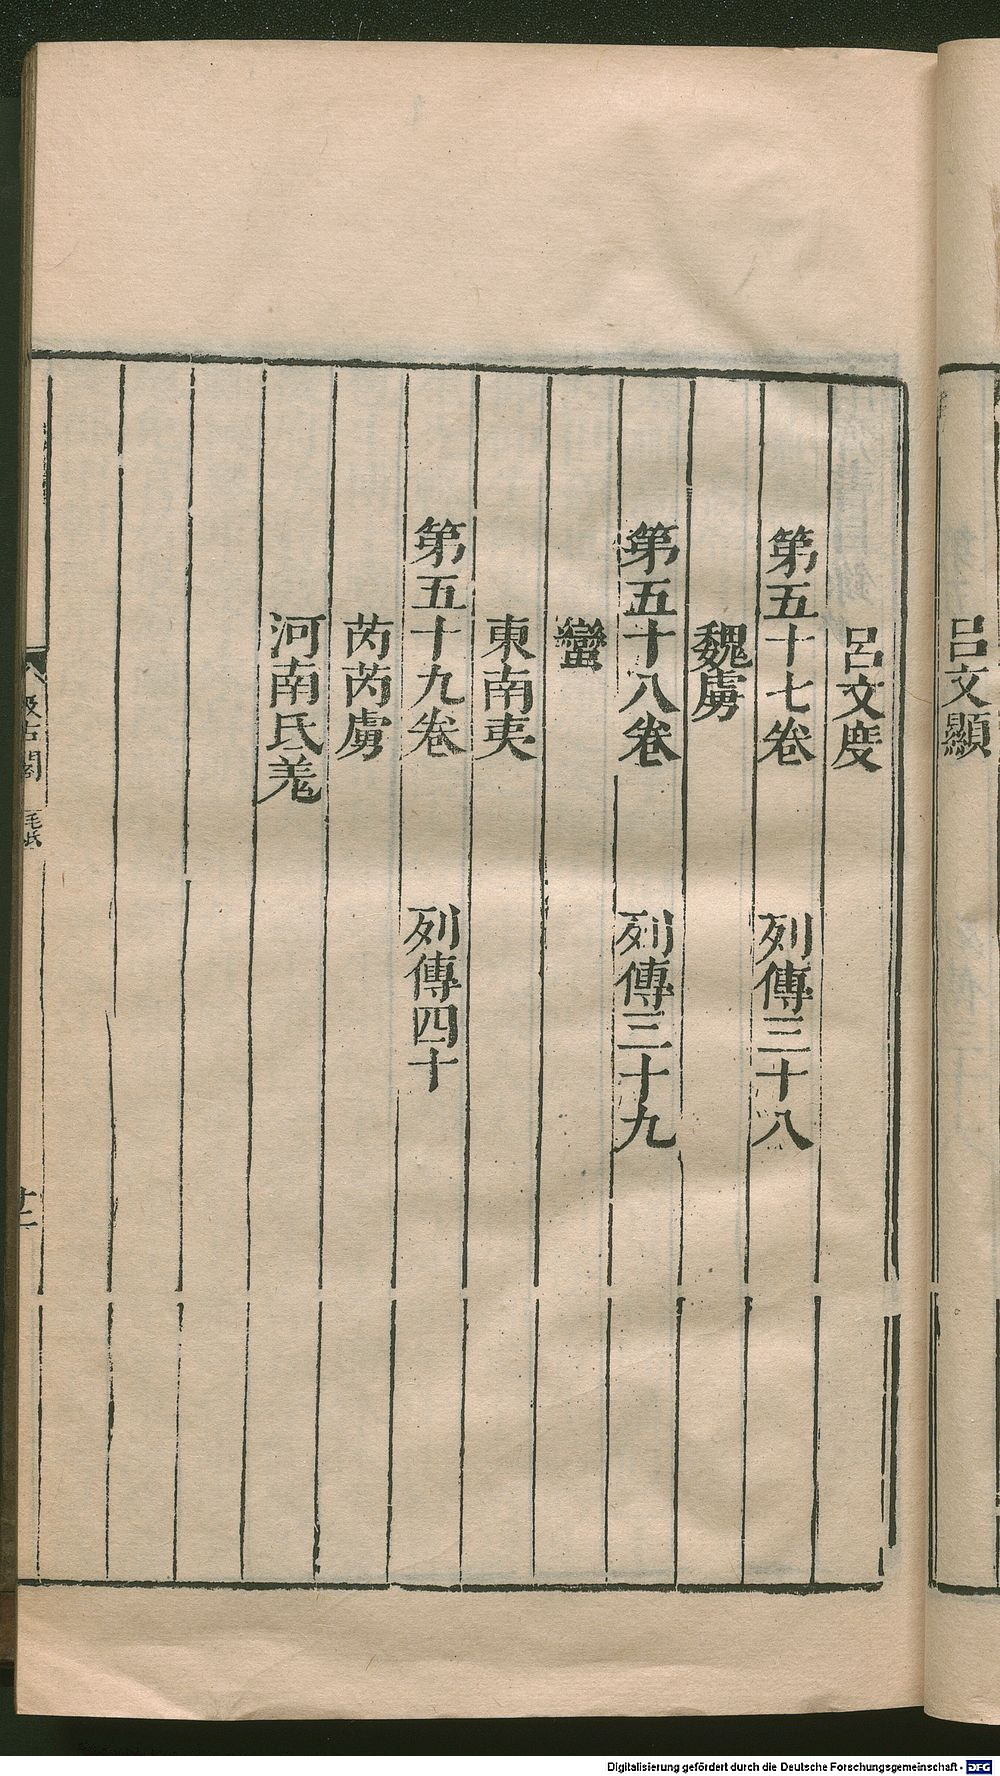 呂文顯
呂文度
第五十七卷 列傳三十八
魏虜
第五十八卷 列傳三十九
蠻
東南夷
第五十九卷 列傳四十
芮芮虜
河南氐羌
汲古閣
毛氏
十二
Digitalisierung gefördert durch die Deutsche Forschungsgemeinschaft - DFG